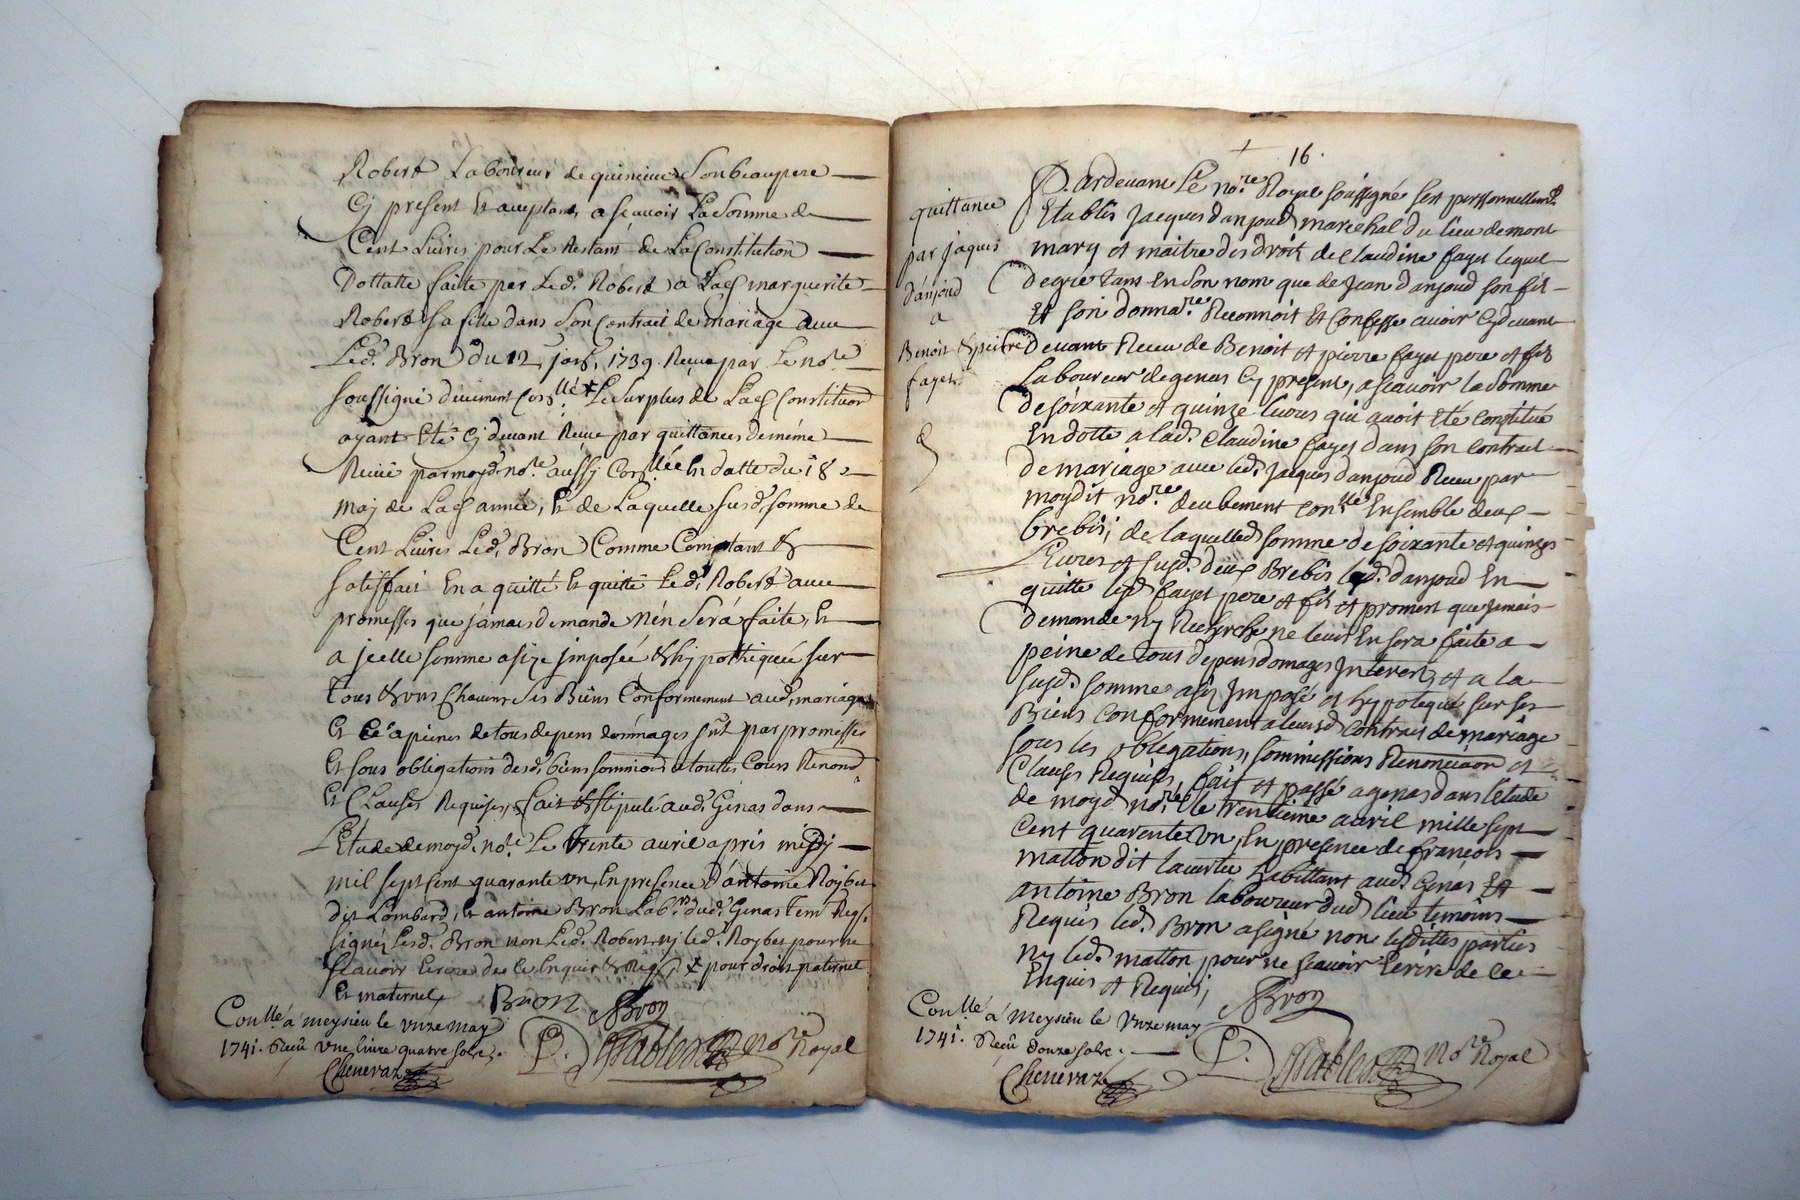 Robert Laboureur de quincieu Son beaupere
Cy present Et acceptant, a scavoir La Somme de
Cent Livres pour Le Restant de La Constitution
Dottalle faitte par Led. Robert a Lad marguerite
Robert sa fille dans Son Contract de mariage avec
Led. Bron du 12 1739. Reçue par Le nore
soussigné düement Conllé Le Surplus de Lad Constitution
ayant Eté Cj devant Reçue par quittances de méme
Reçue par moyd. nore aussy Conllée En datte du 18
may de Lad année, Et de Laquelle susd. somme de
Cent Livres Led. Bron Comme Comptant &
satisfait En a quitté Et quitte Led. Robert avec
promesses que jámais demande n'en Será faite, Et
a jcelle somme asize jmposée & hypothequée sur
tous & uns Chacuns Ses Biens Conformement aud. mariage
Et Cé a peines de tous depens dommages par promesses
Et sous obligations desd. biens soumissions a toutes Cours Renond
Et Clauses Requises, fait & stipulé aud. Genas dans
L'Etude de moyd. nore Le trente avril apres midy
mil sept Cent quarante un, En presence D'antoine Roybet
dit Lombard, Et antoine Bron Labr. dud. Genas tem. Reqs.
signés Lesd. Bron non Led. Robert, nj led. Roybet pour ne
scavoir Ecrire de ce Enquis & Reqs. pour droit paternel
Et maternel
Bron ABron
Conllé á meysieu le unze may
1741. Reçu une livre quatre sols.
Chenevaz
nore Royal
16.
quittance
par jaques
danjoud
a
Benoit & pierre
fayet
Pardevant Le nore Royal soussigné sest personnellemt.
Etablis Jacques danjoud marechal du lieu de mont
mary et maitre des droit de Claudine fayet lequel
degré tant En Son nom que de jean danjoud son fils
Et son donnare Reconnoit Et Confesse avoir Cy devant
devant Receu de Benoit et pierre fayet pere et fils
Laboureur de genas Cy present, a scavoir la Somme
de soixante et quinze livres qui avoit Eté Constitué
En dotte a lad. Claudine fayet dans son Contract
de mariage avec led. Jacques danjoud Receu par
moydit nore deubement conllé Ensemble deux
brebis; de laquelled somme de soixante et quinze
Livres et susd. deux Brebis led. danjoud En
quitte lesd fayet pere et fils et promest que jamais
demande ny Recherche ne leur En sera faite a
peine de tous depens domages Interest, et a la
susd. somme asiz Imposé et hypotequé sur ses
Biens conformement a leursd contract de mariage
sous les obligations, soumissions Renonciaon et
Clauses Requises, fait et passé a genas dans l'Etude
de moyd nore le trentieme avril mille sept
Cent quarente un, En presence de françois
matton dit habittant aud. Genas Et
antoine Bron laboureur dud lieu temoins
Requis led. Bron a signé non lesdittes parties
ny led. matton pour ne scavoir Ecrire de ce
Enquis et Requis;
ABron
Conllé á meysieu le unze may
1741. Reçu douze sols.
Chenevaz
nore Royal